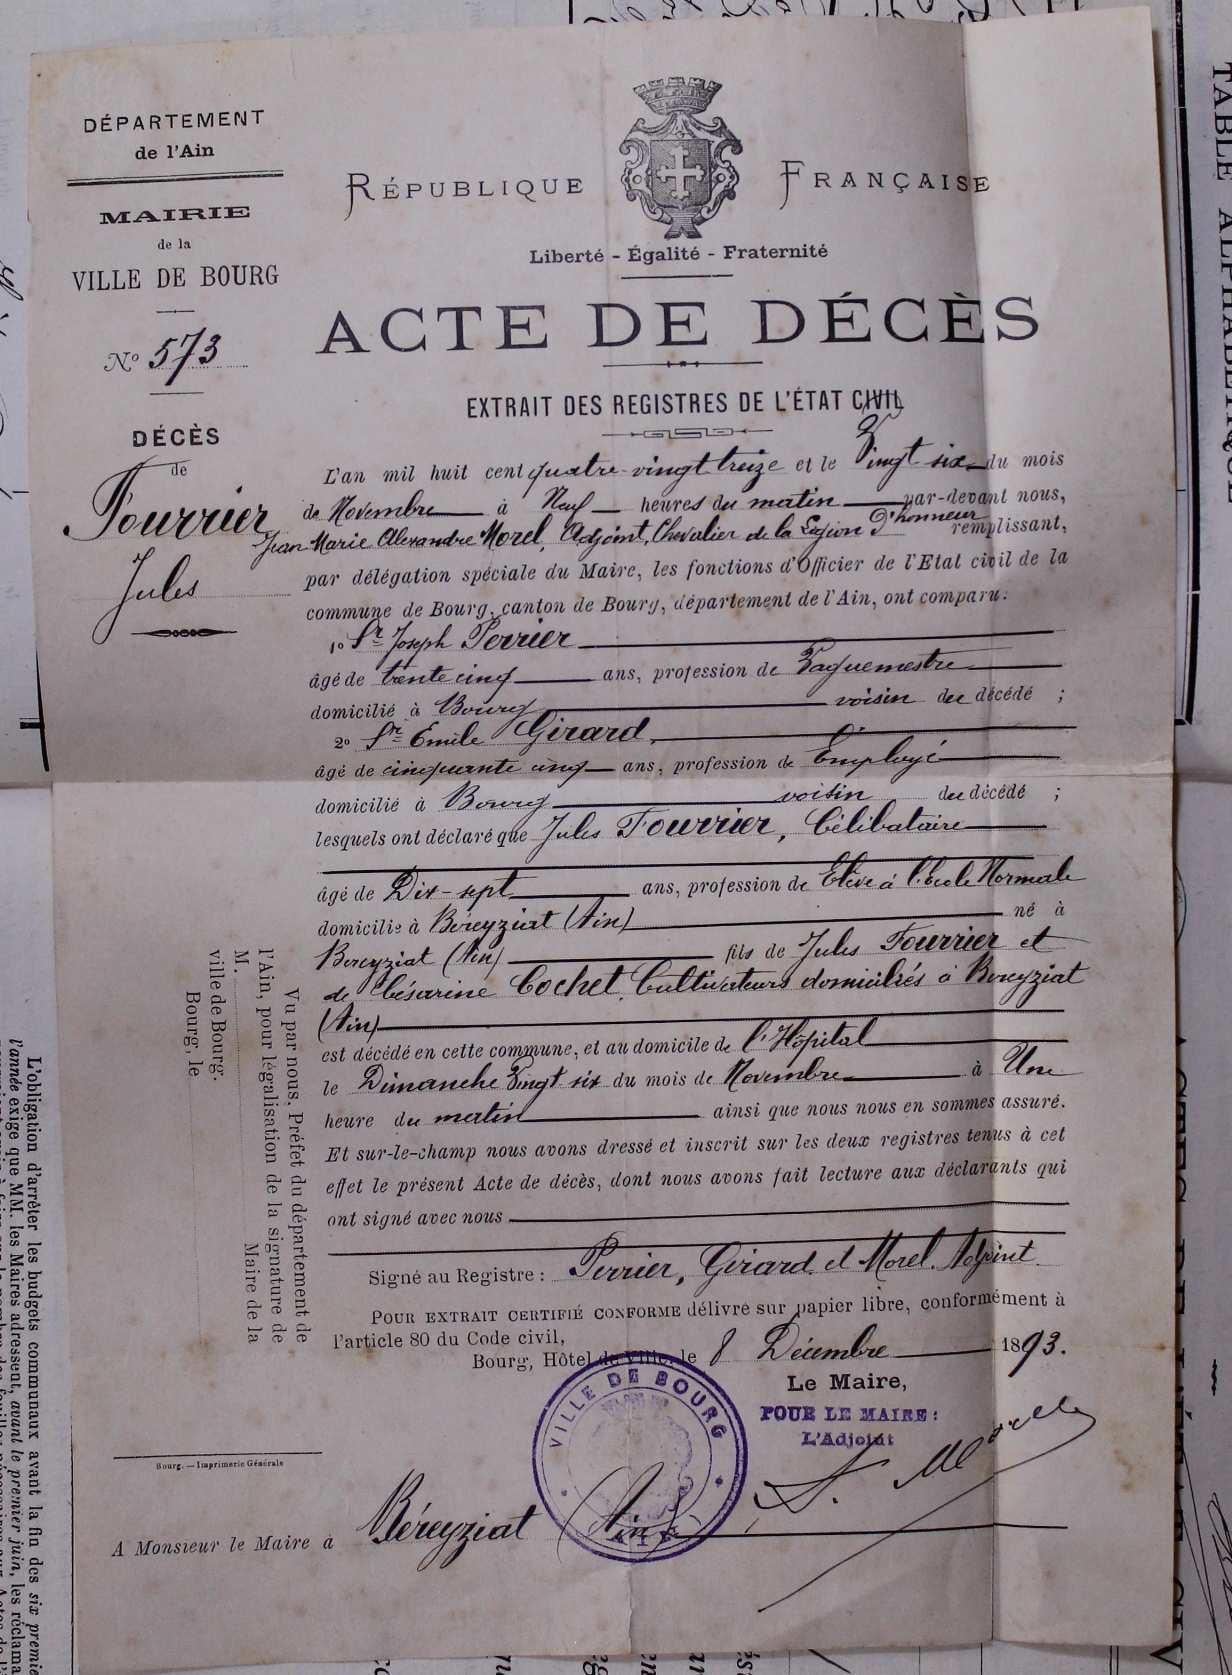 DÉPARTEMENT
de l'Ain
MAIRIE
de la
VILLE DE BOURG
No 573
DÉCÈS
de
Fourrier
Jules
RÉPUBLIQUE FRANÇAISE
Liberté - Égalité - Fraternité
ACTE DE DÉCÈS
EXTRAIT DES REGISTRES DE L'ÉTAT CIVIL
L'an mil huit cent quatre-vingt treize et le Vingt six du mois
de Novembre à Neuf heures du matin par-devant nous,
Jean Marie Alexandre Morel, Adjoint, Chevalier de la Légion d'honneur remplissant,
par délégation spéciale du Maire, les fonctions d'Officier de l'Etat civil de la
commune de Bourg, canton de Bourg, département de l'Ain, ont comparu:
1o Sr Joseph Perrier
âgé de trente cinq ans, profession de Vaguemestre
domicilié à Bourg voisin du décédé ;
2o Sr Emile Girard,
âgé de cinquante cinq ans, profession de Employé
domicilié à Bourg voisin du décédé ;
lesquels ont déclaré que Jules Fourrier, Célibataire
âgé de Dix-sept ans, profession de Elève à l'école Normale
domicilié à Béreyziat (Ain) né à
Bereyziat (Ain) fils de Jules Fourrier et
de Césarine Cochet, Cultivateurs domiciliés à Bereyziat
(Ain)
est décédé en cette commune, et au domicile de l'Hôpital
le Dimanche Vingt six du mois de Novembre à Une
heure du matin ainsi que nous nous en sommes assuré.
Et sur-le-champ nous avons dressé et inscrit sur les deux registres tenus à cet
effet le présent Acte de décès, dont nous avons fait lecture aux déclarants qui
ont signé avec nous
Signé au Registre : Perrier, Girard, et Morel, Adjoint
POUR EXTRAIT CERTIFIÉ CONFORME délivré sur papier libre, conformément à
l'article 80 du Code civil,
Bourg, Hôtel de Ville, le 8 Décembre 1893.
Le Maire,
POUR LE MAIRE :
L'Adjoint
VILLE DE BOURG
AIN
Bourg. — Imprimerie Générale
A Monsieur le Maire à Béreyziat (Ain)
Vu par nous, Préfet du département de
l'Ain, pour légalisation de la signature de
M. Maire de la
ville de Bourg.
Bourg, le
L'obligation d'arrêter les budgets communaux avant la fin des six premie
l'année exige que MM. les Maires adressent, avant le premier juin, les réclama
TABLE ALPHABÉTIQUE